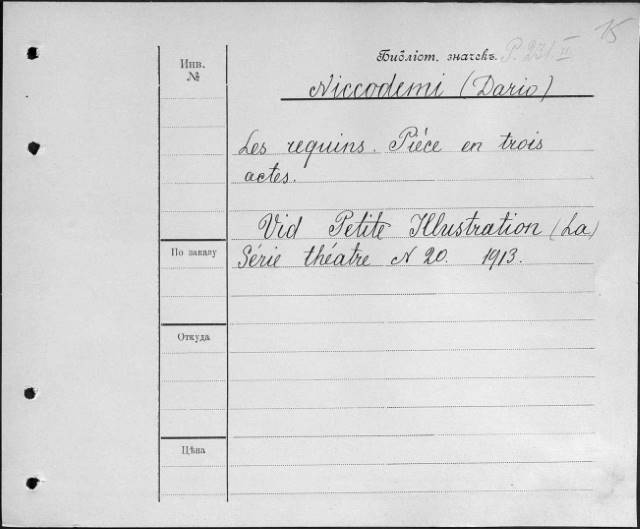 15
Библіот. значекъ. P. 231 II
Инв.
№
Niccodemi (Dario)
Les requins. Piéce en trois
actes.
Vid Petite Illustration (La)
По заказу
Série théatre N 20. 1913.
Откуда
Цѣна